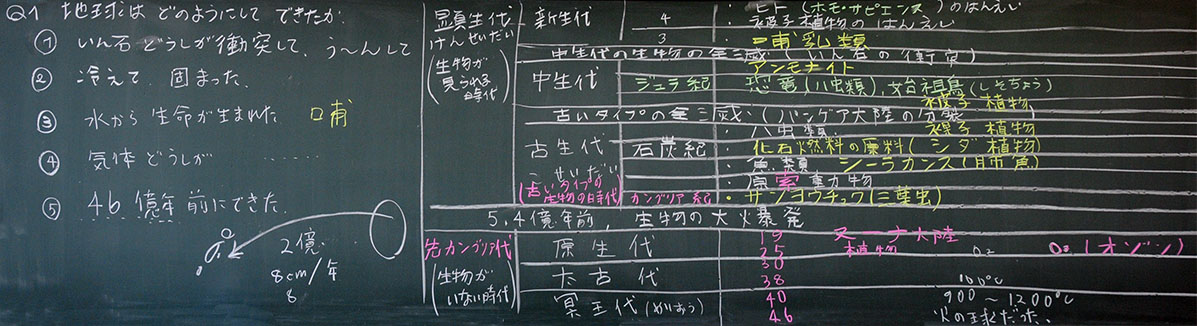 Q1 地球は どのようにして できたか.
① いん石どうしが衝突して、う〜んして
② 冷えて 固まった.
③ 水から 生命が生まれた 口甫
④ 気体どうしが ……
⑤ 46億年前にできた.
2億
8cm/年
8
顕生代
けんせいだい
(生物が
見られる
時代)
新生代
4
・ヒト(ホモ・サピエンス)のはんえい
・被子植物のはんえい
3
・哺乳類
中生代の生物の全滅(いん石の衝突)
アンモナイト
中生代
ジュラ紀
恐竜(ハ虫類),始祖鳥(しそちょう)
裸子植物
古いタイプの全滅・(パンゲア大陸の分裂
・ハ虫類.
裸子植物
古生代
こせいだい
(古いタイプの
生物の時代)
石炭紀
・化石燃料の原料(シダ植物)
・魚類 シーラカンス(肺魚)
・原索動物
カンブリア紀
・サンヨウチュウ(三葉虫)
5.4億年前,生物の大爆発
先カンブリア代
(生物が
いない時代)
原生代
19
ヌーナ大陸
25
植物
O₂
O₃(オゾン)
30
太古代
38
100℃
冥王代(めいおう)
40
900〜1200℃
46
火の球だった.